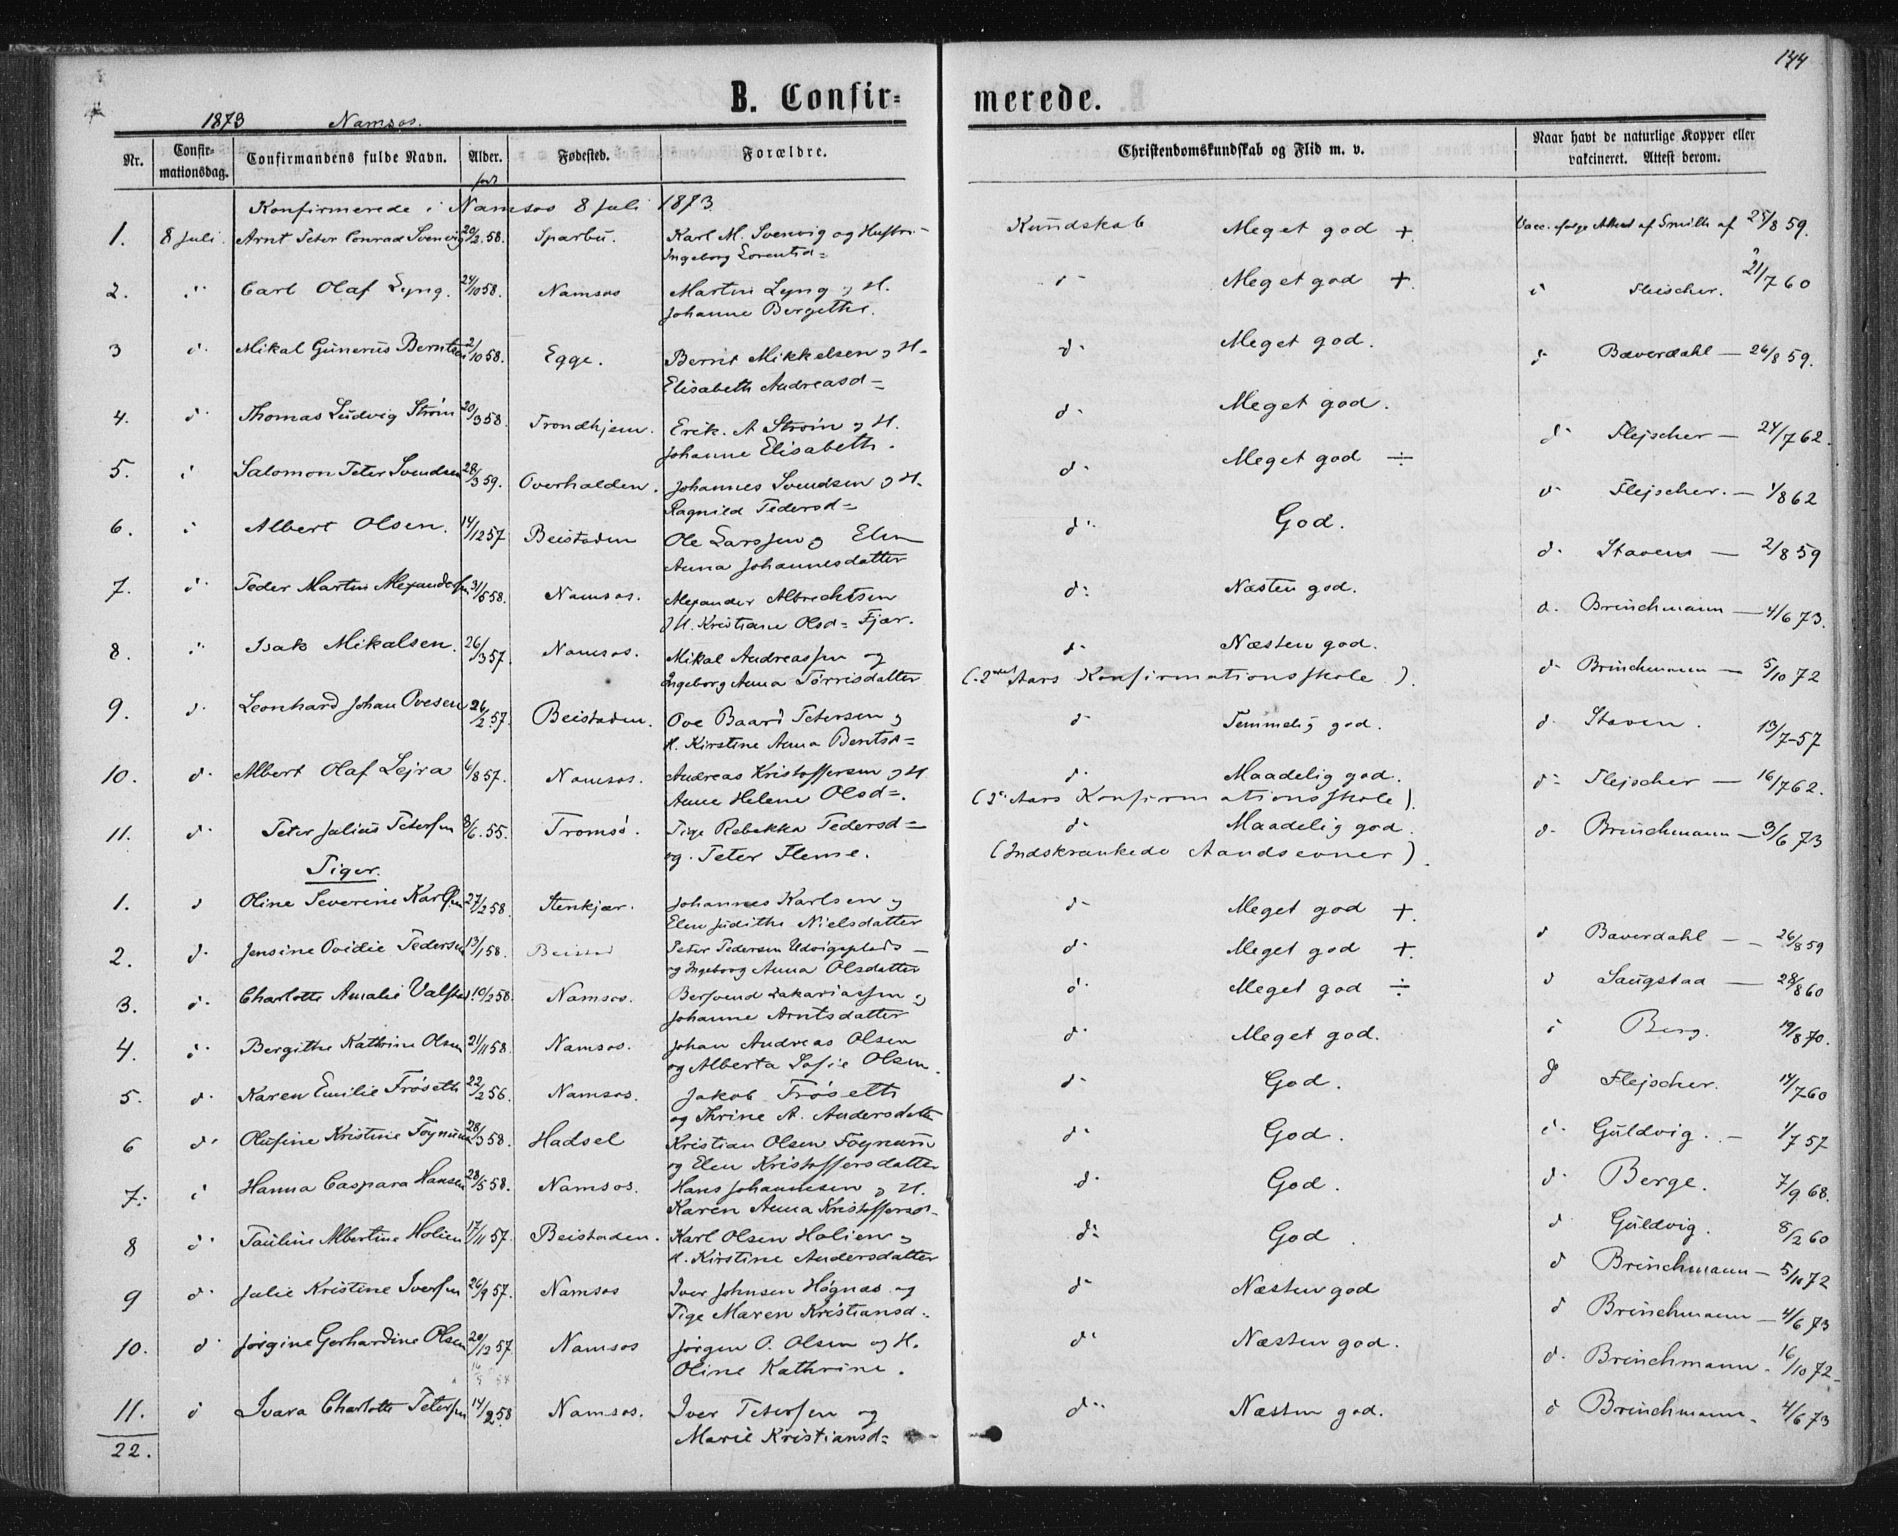 144
B. Confir= merede.
1873 Namsos.
Nr. Confir-mationsdag. Confirmandens fulde Navn. Alder. Fødested. Forældre. Christendomskundskab og Flid m. v. Naar havt de naturlige Kopper eller vakcineret. Attest derom.
født
Konfirmerede i Namsos 8 Juli 1873
1. 8 Juli. Arnt Peter Conrad Svenvig 20/2.58. Sparbu. Karl M. Svenvig og Hustru Kundskab Meget god + Vacc. ifølge Attest af Smith af 25/8 59.
Ingeborg Lorentsd=
2. d- Carl Olaf Lyng. 24/10 58. Namsos Martin Lyng og H. d- Meget god + d Fleischer. 21/7 60
Johanne Bergethe.
3 d- Mikal Gunerus Berntsen 2/10 58. Egge. Bernt Mikkelsen og H. d- Meget god. d- Bæverdahl — 26/8 59.
Elisabeth Andreasd=
4. d- Thomas Ludvig Strøm 20/3 58. Trondhjem. Erik. A Strøm og H. d- Meget god. d- Flejscher — 24/7 62.
Johanne Elisabeth.
5. d Salomon Peter Svendsen 28/3 59. Overhalden. Johannes Svendsen og H. d- Meget god ÷ d- Flejscher. — 1/8 62
Ragnild Pedersd=
6. d Albert Olsen. 14/12 57 Beistaden Ole Larssen og Elen d- God. d- Staven — 2/8 59
Anna Johannesdatter
7. d- Peder Martin Alexandersen 31/5 58. Namsos. Alexander Albrechtsen d- Næsten god. d. Brinchmann — 4/6 73.
og H. Kristiane Olsd= Fjær.
8. d- Isak Mikalsen. 26/3 57. Namsos. Mikal Andreassen og d- Næsten god. d- Brinchmann — 5/10 72
Ingeborg Anna Tørrisdatter (2det Aars Konfirmationsskole).
9. d. Leonhard Johan Ovesen 26/2 57. Beistaden. Ove Baard Petersen og d- Temmelig god. d. Staven. 13/7-57
H. Kirstine Anna Bentsd=
10. d. Albert Olaf Lejra 6/8 57. Namsos. Andreas Kristoffersen og H d- Maadelig god. d- Flejscher — 16/7 62.
Anne Helene Olsd=. (2. Aars Konfirmationsskole).
11. d- Peter Julius Petersen 8/6. 55. Tromsø. Pige Rebekka Pedersd= d- Maadelig god. d- Brinchmann — 3/6 73
og. Peter Flemse. (Indskrænkede Aandsevner).
Piger.
1. d Oline Severine Karlsen 27/2 58. Stenkjær. Johannes Karlsen og d- Meget god +. d Bæverdahl — 26/8 59
Elen Judithe Nielsdatter
2. d- Jensine Ovidie Pedersen 13/1 58. Beistad Peter Pedersen Udvigsplads d- Meget god +. d Saugstad — 28/8 60
og Ingeborg Anna Olsdatter
3. d- Charlotte Amalie Valstad 19/2 58. Namsos. Bersvend Zakariassen og d- Meget god ÷ d Berg. 19/8 70.
Johanne Arntsdatter
4. d- Bergithe Kathrine Olsen 21/11 58. Namsos. Johan Andreas Olsen d- Meget god. d Flejscher. 14/7 60
og Alberta Sofie Olsen.
5. d- Karen Emilie Frøseth 22/2 56. Namsos. Jakob Frøseth d- God. d- Guldvig. - 1/7 57
og Thrine A. Andersdatter
6 d- Olufine Kristine Fognum 28/3 58. Hadsel Kristian Olsen Fognum d- God. d- Berge. 7/9 68.
og Elen Kristoffersdatter
7. d Hanna Caspara Hansen 28/5 58. Namsos. Hans Johannesen og H. d- God. d Guldvig. 8/2 60
Karen Anna Kristoffersd-
8 d- Pauline Albertine Holien 17/11 57. Beistaden. Karl Olsen Holien og d- God. d Brinchmann — 5/10 72
H. Kirstine Andersdatter
9 d- Julie Kristine Iversen 26/9 57. Namsos Iver Johnsen Høgnæs og d- Næsten god d Brinchmann — 4/6 73
Pige Maren Kristiansd-.
10. d- Jørgine Gerhardine Olsen 20/12 57. Namsos Jørgen O. Olsen og H. d- Næsten god. d. Brinchmann. 16/10 72-
Oline Kathrine.
11. d Ivara Charlotte Petersen 14/2 58 Namsos. Iver Petersen og d- Næsten god. d Brinchmann. 4/6 73
Marie Kristiansd=
22.